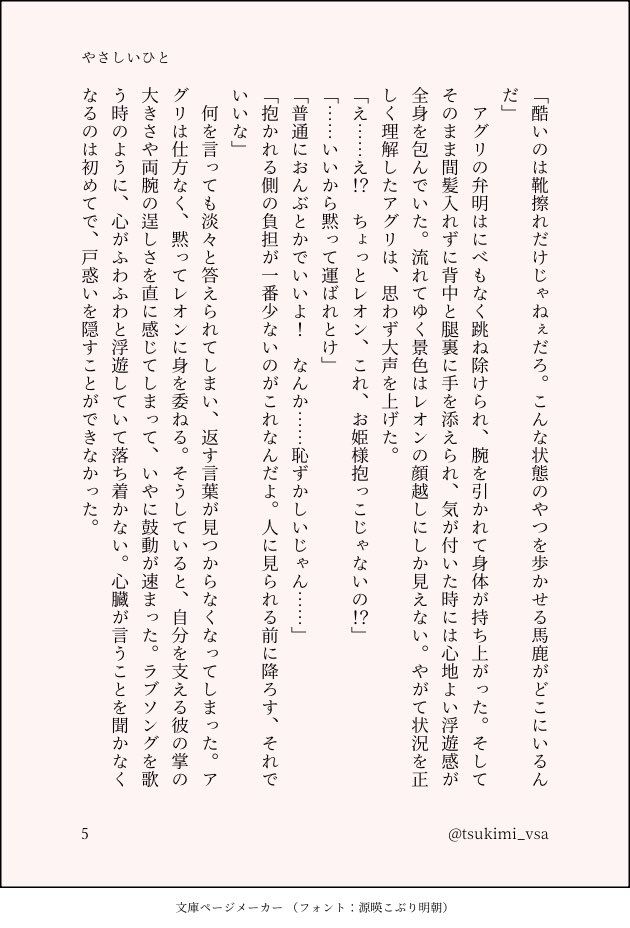 やさしいひと
「酷いのは靴擦れだけじゃねぇだろ。こんな状態のやつを歩かせる馬鹿がどこにいるん
だ」
　アグリの弁明はにべもなく跳ね除けられ、腕を引かれて身体が持ち上がった。そして
そのまま間髪入れずに背中と腿裏に手を添えられ、気が付いた時には心地よい浮遊感が
全身を包んでいた。流れてゆく景色はレオンの顔越しにしか見えない。やがて状況を正
しく理解したアグリは、思わず大声を上げた。
「え……え!?　ちょっとレオン、これ、お姫様抱っこじゃないの!?」
「……いいから黙って運ばれとけ」
「普通におんぶとかでいいよ！　なんか……恥ずかしいじゃん……」
「抱かれる側の負担が一番少ないのがこれなんだよ。人に見られる前に降ろす、それで
いいな」
　何を言っても淡々と答えられてしまい、返す言葉が見つからなくなってしまった。ア
グリは仕方なく、黙ってレオンに身を委ねる。そうしていると、自分を支える彼の掌の
大きさや両腕の逞しさを直に感じてしまって、いやに鼓動が速まった。ラブソングを歌
う時のように、心がふわふわと浮遊していて落ち着かない。心臓が言うことを聞かなく
なるのは初めてで、戸惑いを隠すことができなかった。
5
@tsukimi_vsa
文庫ページメーカー（フォント：源暎こぶり明朝）